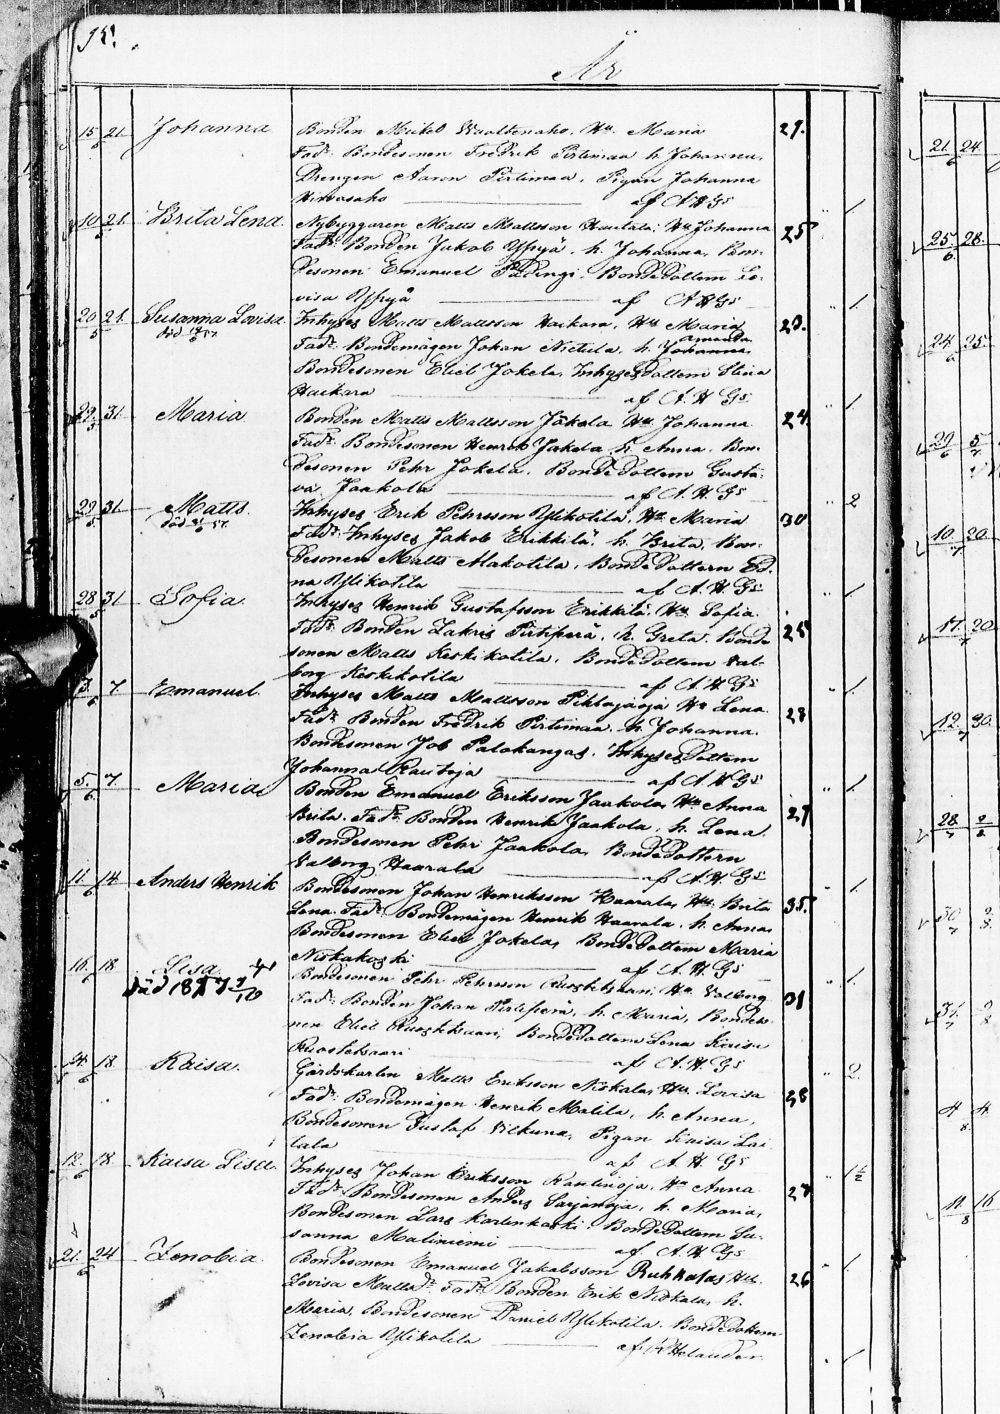 95.
År
15/5 21. Johanna
Bonden Mickel Waaltenaho, Hu. Maria 29.
Fadr. Bondesonen Fredrik Pirtimaa h. Johanna,
Drengen Aaron Pirtimaa, Pigan Johanna
af A. H. Gs
10/5 21. Brita Lena. 1
Nybyggaren Matts Mattsson Hautala, Hu Johanna 25
Fadr. Bonden Jakob h. Johanna, Bon-
desonen Emanuel Bondedottern Lo-
visa af A H Gs
20/5 21. Susanna Lovisa 1
död 19/6 57.
Inhyses Matts Mattsson Haikara, Hu Maria 23.
Amanda
Fadr. Bondemågen Johan Nietula, h. Johanna
Bondesonen Eliel Jokela, Inhysesdottern Stina
Haikara af A. H Gs
29/5 31. Maria 1.
Bonden Matts Mattsson Jäkala Hu Johanna 24.
Fadr. Bondesonen Henrik Jakola h. Anna. Bon-
desonen Pehr Jokela. Bondedottern Gusta-
va Jaakola af A. H. Gs
29/5 31. Matts. 2
död 31/6 57.
Inhyses Erik Pehrsson Ylikotila, Hu Maria 30
Fadr. Inhyses Jakob Erikkilä, h. Brita, Bon-
desonen Matts Alakotila, Bondedottern Ed-
na Ylikotila af A. H. Gs
28/5 31. Sofia. 1
Inhyses Henrik Gustafsson Erikkilä. Hu Sofia. 25
Fadr. Bonden Zakris Pirtiperä, h. Greta. Bonde
sonen Matts Keskikotila, Bondedottern Val-
borg Keskikotila af A. H Gs
3/6 7. Emanuel. 1.
Inhyses Matts Mattsson Pihlajaoja Hu Lena. 28
Fadr. Bonden Fredrik Pirtimaa, h. Johanna.
Bondesonen Job Palokangas, Inhysesdottern
Johanna Rautoja af A. H Gs
5/6 7. Maria 1
Bonden Emanuel Eriksson Jaakola, Hu Anna 27
Brita. Fadr. Bonden Henrik Jaakola, h. Lena.
Bondesonen Pehr Jaakola, Bondedottern
Valborg Haarala af A. H. Gs
11/6 14. Anders Henrik 1.
Bondesonen Johan Henriksson Haarala, Hu. Brita 35.
Lena. Fadr. Bondemågen Henrik Haarala, h. Anna,
Bondesonen Eliel Jokela, Bondedottern Maria
Niskakoski af A. H. Gs
16/6 18. Lisa. 1.
Död 1857 7/10
Bondesonen Pehr Pehrsson Ruoskkaari, Hu. Valborg 31
Fadr. Bonden Johan Pirtiperä, h. Maria, Bondeso-
nen Eliel Ruoskkaari, Bondedottern Lena Kaisa
af A. H. Gs
14/6 18. Kaisa. 2.
Gårdskarlen Matts Eriksson Niskala, Hu. Lovisa 38
Fadr. Bondemågen Henrik Matila, h. Anna,
Bondesonen Gustaf Vilkuna, Pigan Kaisa Lai-
tala af A. H. Gs
12/6 18. Kaisa Lisa. 1 1/2
Inhyses Johan Eriksson Rantinoja, Hu Anna 27
Fadr. Bondesonen Anders Sarjanoja, h. Maria,
Bondesonen Lars Karlenkoski Bondedottern Su-
sanna Maliniemi af A. H Gs
21/6 24 Zenobia. 1
Bondesonen Emanuel Jakobsson Ruhkalas Hu. 26
Lovisa Mattsdr. Fadr. Bonden Erik Niskala, h.
Maria, Bondesonen Daniel Ylikotila. Bondedottern
Zenobia Ylikotila af K Helander. 1
21./6 24
25/6 28.
24/6 25.
29/6 5/7
10./7 20.
17./7 20
12./7 20.
28/7 2/8
30/7 2/8
31/7 2/8
4/8 4.
11/8 16